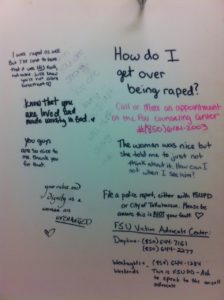 I was raped as well
But I've come to learn
that it was NOT fault
you are loved and
made worthy in God.
you guys
are so nice to
me. thank you
for that.
your value and
Dignity as a
woman are
UNCHANGED!
How do I
get over
being raped?
Call or make an appointment
at the FSU counseling center
(850)644-2003
The woman was nice but
she told me to just not
think about it. How can I
not when I see him?
File a police report, either with FSUPD
or City of Tallahassee. Please be
aware this is NOT your fault. ♡
FSU Victim Advocate Center:
Daytime- (850) 644-7161
(850) 644-2277
Weeknights, (850) 644-1234
Weekends This is FSUPD - Ask
to speak to the victim
advocate